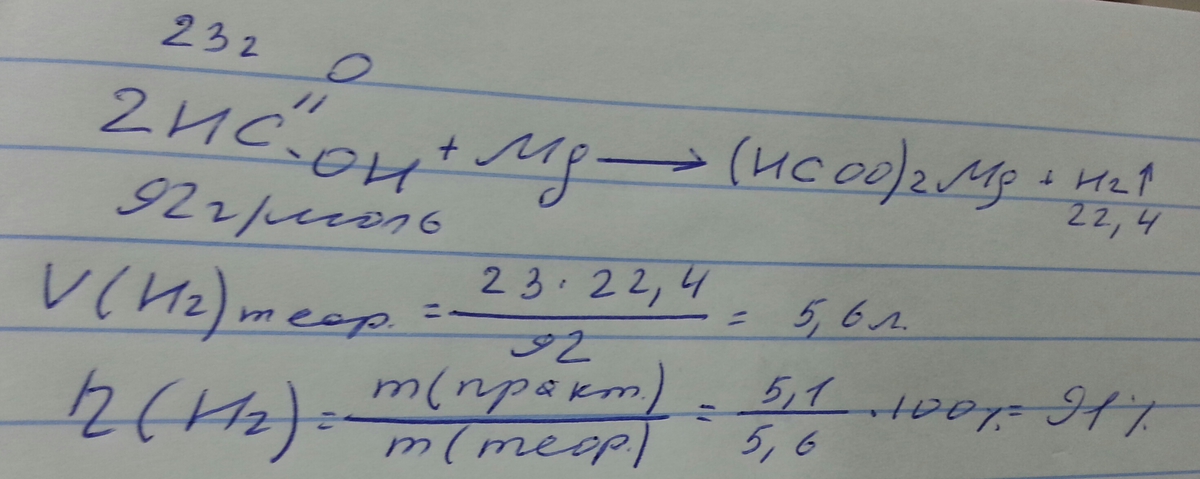 23г
O
2HC″-OH + Mg → (HCOO)2Mg + H2↑
92г/моль 22,4
V(H2)теор. = 23·22,4 / 92 = 5,6л.
η(H2) = m(практ.) / m(теор.) = 5,1 / 5,6 ·100%= 91%